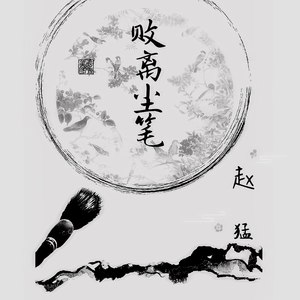 败离尘笔
赵
猛